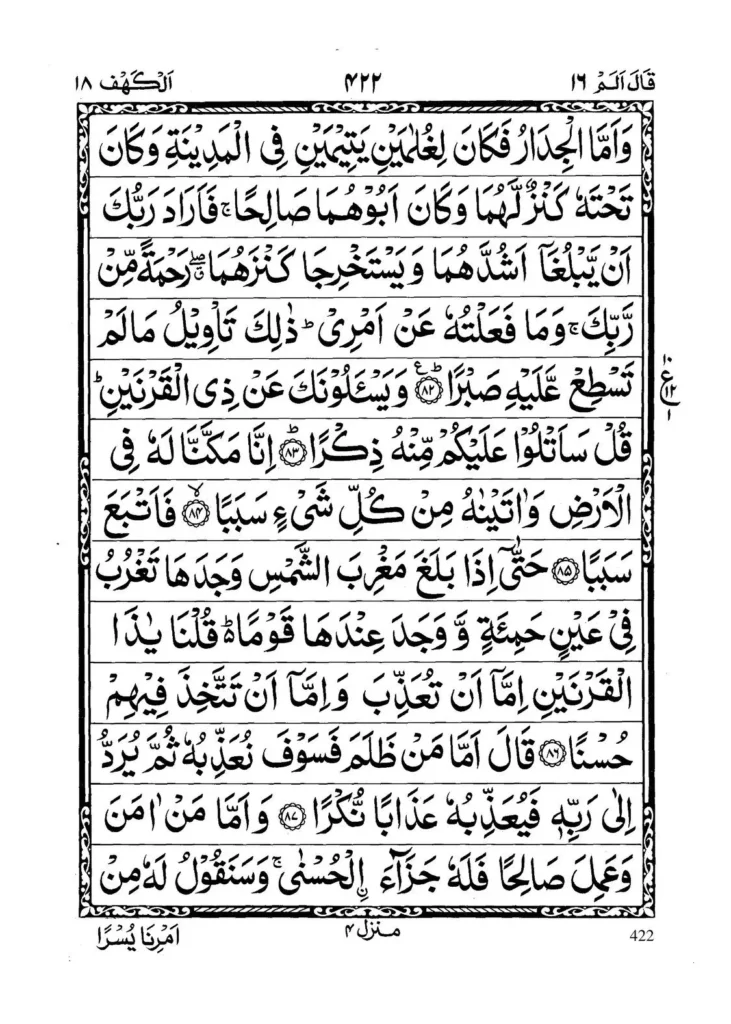 قَالَ اَلَمۡ ١٦ ۴۲۲ اَلۡكَهۡف ١٨
وَاَمَّا الۡجِدَارُ فَكَانَ لِغُلٰمَيۡنِ يَتِيۡمَيۡنِ فِى الۡمَدِيۡنَةِ وَكَانَ
تَحۡتَهٗ كَنۡزٌ لَّهُمَا وَكَانَ اَبُوۡهُمَا صَالِحًا ۚ فَاَرَادَ رَبُّكَ
اَنۡ يَّبۡلُغَاۤ اَشُدَّهُمَا وَيَسۡتَخۡرِجَا كَنۡزَهُمَا ۖ رَحۡمَةً مِّنۡ
رَّبِّكَ ۚ وَمَا فَعَلۡتُهٗ عَنۡ اَمۡرِىۡ ؕ ذٰ لِكَ تَاۡوِيۡلُ مَا لَمۡ
تَسۡطِعۡ عَّلَيۡهِ صَبۡرًا ؕ ﴿۸۲﴾ وَيَسۡـَٔلُوۡنَكَ عَنۡ ذِى الۡقَرۡنَيۡنِ ؕ
قُلۡ سَاَتۡلُوۡا عَلَيۡكُمۡ مِّنۡهُ ذِكۡرًا ؕ ﴿۸۳﴾ اِنَّا مَكَّنَّا لَهٗ فِى
الۡاَرۡضِ وَاٰتَيۡنٰهُ مِنۡ كُلِّ شَىۡءٍ سَبَبًا ۙ ﴿۸۴﴾ فَاَتۡبَعَ
سَبَبًا ﴿۸۵﴾ حَتّٰٓى اِذَا بَلَغَ مَغۡرِبَ الشَّمۡسِ وَجَدَهَا تَغۡرُبُ
فِىۡ عَيۡنٍ حَمِئَةٍ وَّ وَجَدَ عِنۡدَهَا قَوۡمًا ؕ قُلۡنَا يٰذَا
الۡقَرۡنَيۡنِ اِمَّاۤ اَنۡ تُعَذِّبَ وَاِمَّاۤ اَنۡ تَتَّخِذَ فِيۡهِمۡ
حُسۡنًا ﴿۸۶﴾ قَالَ اَمَّا مَنۡ ظَلَمَ فَسَوۡفَ نُعَذِّبُهٗ ثُمَّ يُرَدُّ
اِلٰى رَبِّهٖ فَيُعَذِّبُهٗ عَذَابًا نُّكۡرًا ﴿۸۷﴾ وَاَمَّا مَنۡ اٰمَنَ
وَعَمِلَ صَالِحًا فَلَهٗ جَزَآءَ ۨالۡحُسۡنٰى ۚ وَسَنَقُوۡلُ لَهٗ مِنۡ
۱۰
ع
۱۲
۱
اَمۡرِنَا يُسۡرًا منزل ۴ 422